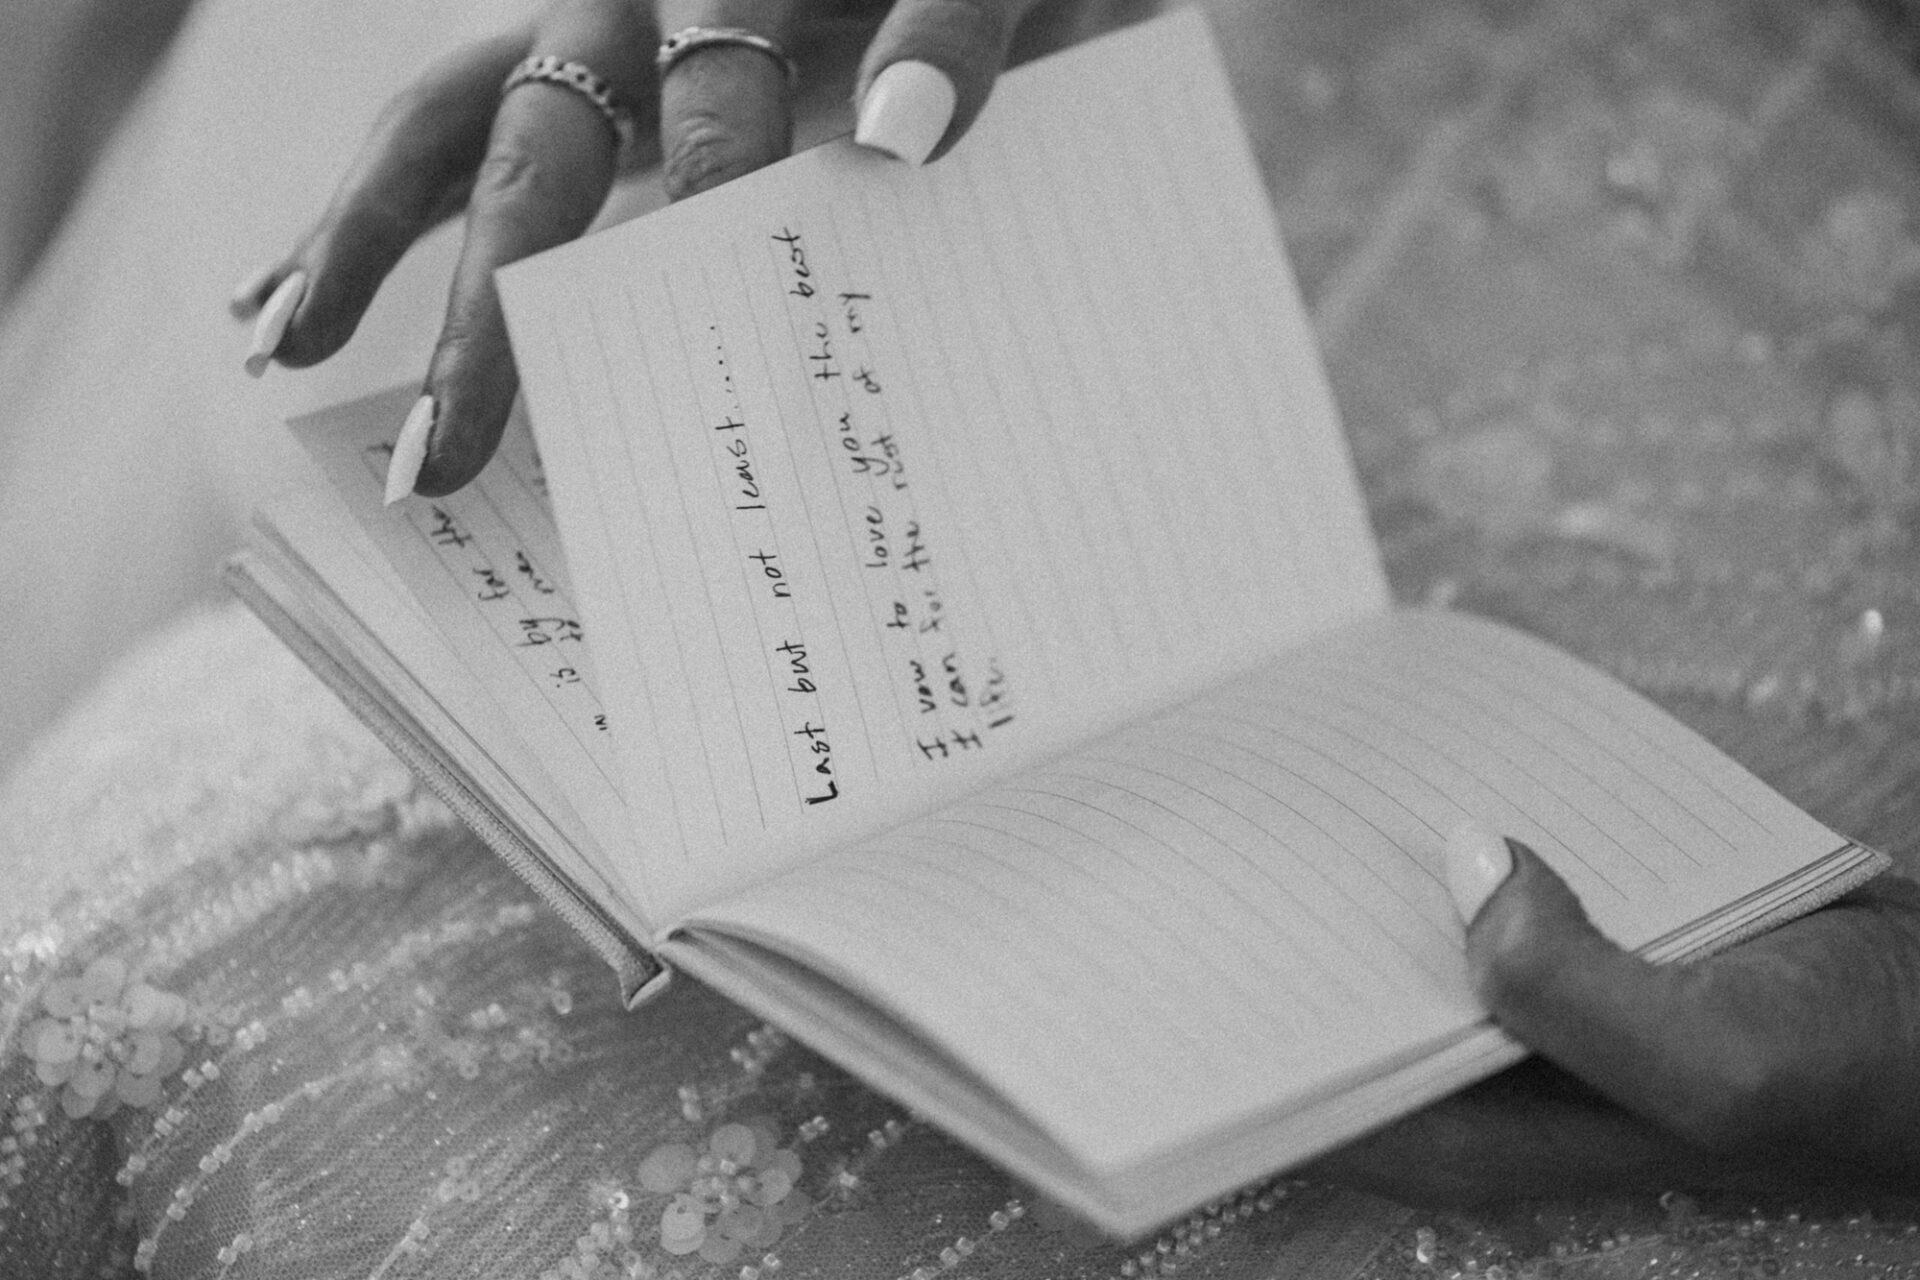 for the
by me
is
IN
Last but not least......
I vow to love you the best
I can for the rest of my
life.